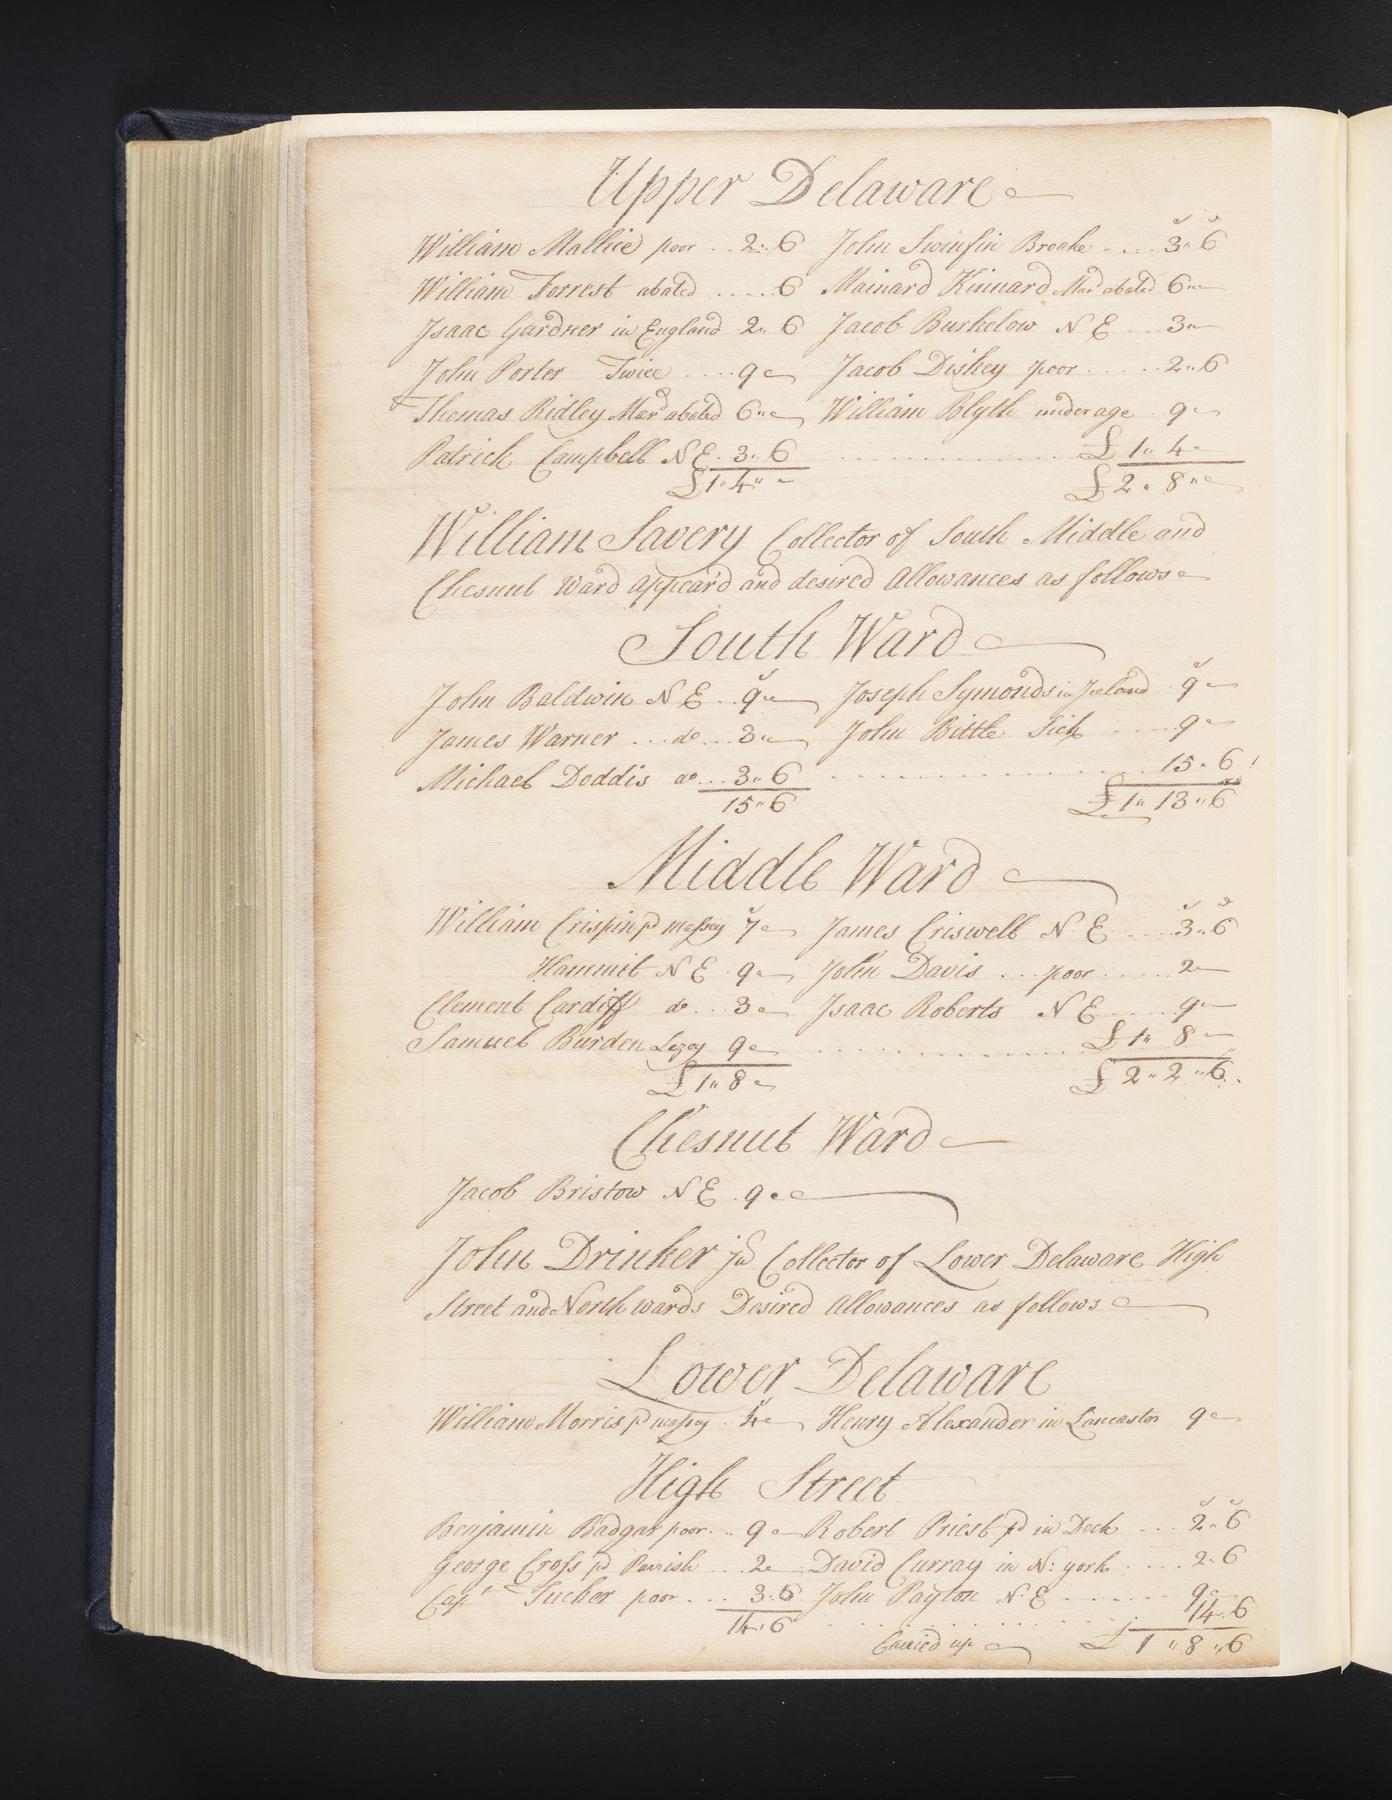 Upper Delaware
William Mallice poor .. 2"6 John Swinfin Broake .... 3"6
William Forrest abated ..... 6 Mainard Kinnard Mard abated 6"
Isaac Gardner in England 2"6 Jacob Burkelow N E ... 3"
John Porter Twice .... 9 Jacob Diskey poor ..... 2"6
Thomas Ridley Mard abated 6" William Blyth under age .. 9
Patrick Campbell N E . 3"6 £ 1" 4
£ 1"4" £ 2" 8"
William Savery Collector of South Middle and
Chesnut Ward appear'd and desired Allowances as follows
South Ward
John Baldwin N E .. 9" Joseph Symonds in Ireland . 9
James Warner ... do ... 3" John Bittle Sick .... 9
Michael Doddis do ... 3"6 15"6
15"6 £ 1" 13"6
Middle Ward
William Crispin pd massey 7 James Criswell N E ... 3"6
Hammit N E . 9 John Davis ... poor ..... 2
Clement Cardiff do ... 3 Isaac Roberts N E ..... 9
Samuel Burden 9 £ 1" 8
£ 1"8 £ 2"2"6
Chesnut Ward
Jacob Bristow N E . 9
John Drinker jur Collector of Lower Delaware High
Street and North wards Desired Allowances as follows
Lower Delaware
William Morris pd massey . 4 Henry Alexander in Lancaster 9
High Street
Benjamin Badgar poor ... 9 Robert Priest pd in Dock ... 2"6
George Cross pd Parrish ... 2 David Curray in N: york .... 2"6
Capt Tucker poor ... 3"6 John Payton N: E ...... 9
14"6 14"6
Carried up £ 1"8"6